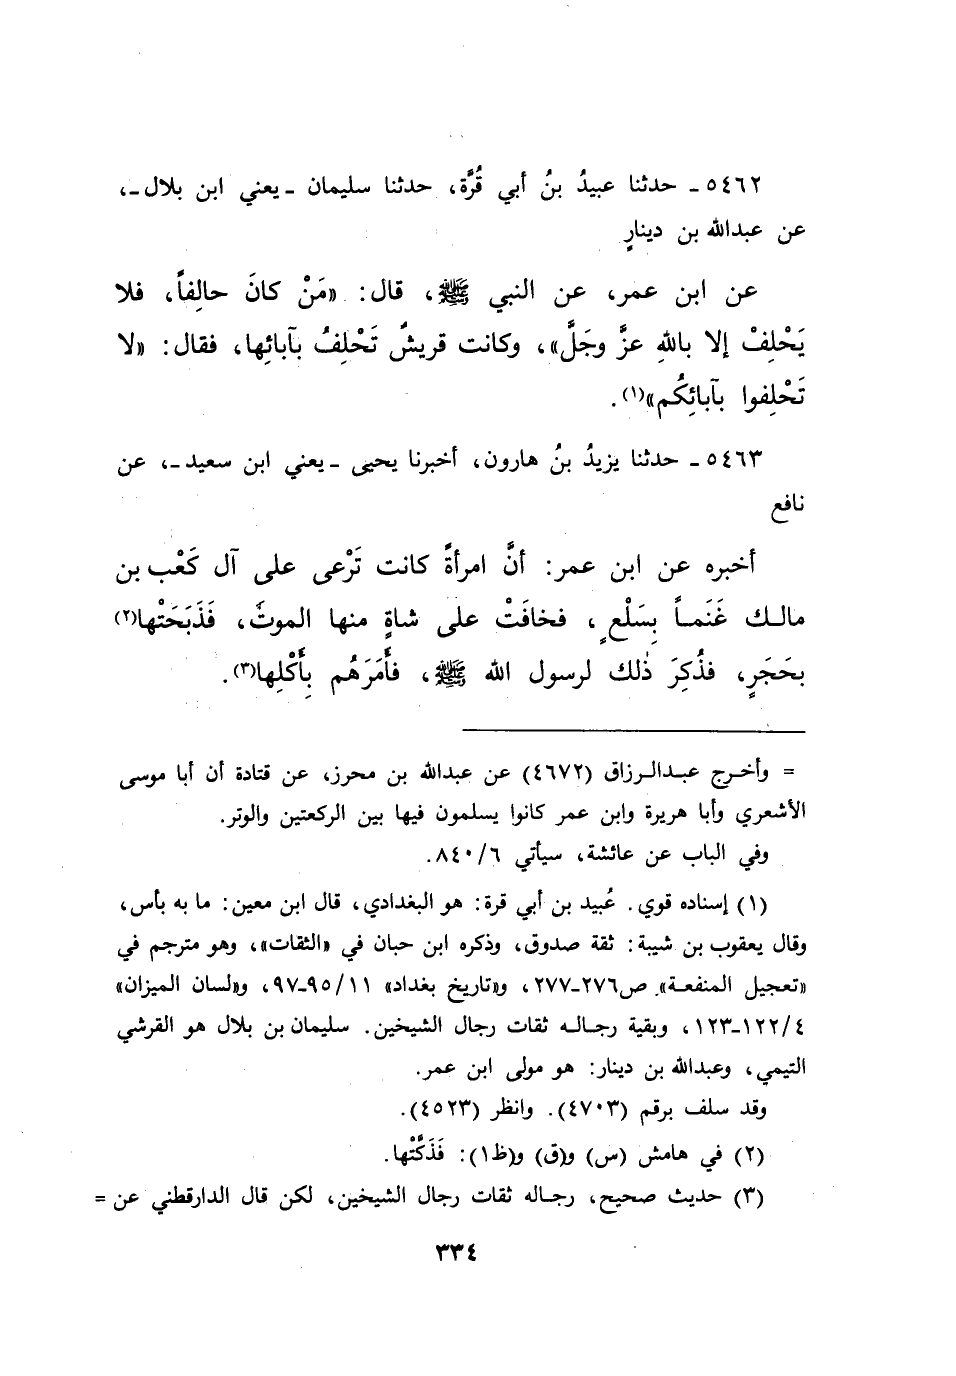 ٥٤٦٢ ـ حدثنا عبيدُ بنُ أبي قُرَّة، حدثنا سليمان ـ يعني ابن بلال ـ،
عن عبدالله بن دينارٍ
عن ابن عمر، عن النبي ﷺ، قال: «مَنْ كانَ حالِفاً، فلا
يَحْلِفْ إلا باللهِ عزَّ وجَلَّ»، وكانت قريشٌ تَحْلِفُ بآبائِها، فقال: «لا
تَحْلِفوا بآبائِكُم»(١).
٥٤٦٣ ـ حدثنا يزيدُ بنُ هارون، أخبرنا يحيى ـ يعني ابن سعيد ـ، عن
نافع
أخبره عن ابن عمر: أنَّ امرأةً كانت تَرْعى على آل كَعْب بن
مالك غَنَماً بِسَلْعٍ، فخافَتْ على شاةٍ منها الموتَ، فَذَبَحَتْها(٢)
بحَجَرٍ، فذُكِرَ ذٰلك لرسول الله ﷺ، فأَمَرَهُم بِأَكْلِها(٣).
= وأخرج عبدالرزاق (٤٦٧٢) عن عبدالله بن محرز، عن قتادة أن أبا موسى
الأشعري وأبا هريرة وابن عمر كانوا يسلمون فيها بين الركعتين والوتر.
وفي الباب عن عائشة، سيأتي ٨٤٠/٦.
(١) إسناده قوي. عُبيد بن أبي قرة: هو البغدادي، قال ابن معين: ما به بأس،
وقال يعقوب بن شيبة: ثقة صدوق، وذكره ابن حبان في «الثقات»، وهو مترجم في
«تعجيل المنفعة» ص٢٧٦ـ٢٧٧، و«تاريخ بغداد» ٩٥/١١ـ٩٧، و«لسان الميزان»
١٢٢/٤ـ١٢٣، وبقية رجاله ثقات رجال الشيخين. سليمان بن بلال هو القرشي
التيمي، وعبدالله بن دينار: هو مولى ابن عمر.
وقد سلف برقم (٤٧٠٣). وانظر (٤٥٢٣).
(٢) في هامش (س) و(ق) و(ظ١): فَذَكَّتْها.
(٣) حديث صحيح، رجاله ثقات رجال الشيخين، لكن قال الدارقطني عن =
٣٣٤